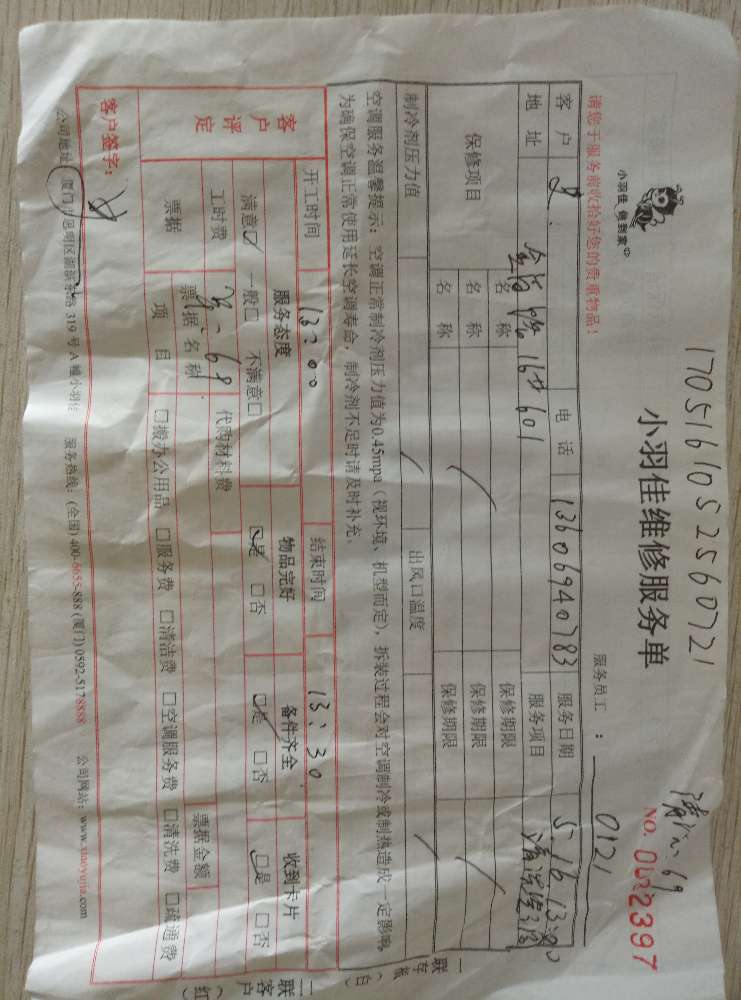 1705161052560721
小羽佳 做到家
小羽佳维修服务单
NO. 0002397
请您于服务前收拾好您的贵重物品!
服务员工 : 0121
客户 电话 13606940783 服务日期 5.16 13:00
地址 601 服务项目
保修项目 名称 保修期限
名称 保修期限
名称 保修期限
制冷剂压力值 出风口温度
空调服务温馨提示:空调正常制冷剂压力值为0.45mpa(视环境、机型而定),拆装过程会对空调制冷或制热造成一定影响。
为确保空调正常使用延长空调寿命,制冷剂不足时请及时补充。
开工时间 13:00 结束时间 13:30
客户评定 服务态度 物品完好 备件齐全 收到卡片
满意☑ 一般□ 不满意□ ☑是 □否 ☑是 □否 □是 □否
工时费 代购材料费
票据 票据名称 票据金额
项目 □搬办公用品 □服务费 □清洁费 □空调服务费 □清洗费 □疏通费
客户签字:
公司地址:厦门市思明区湖滨东路 319 号 A 幢小羽佳 服务热线:(全国) 400-6655-888 (厦门) 0592-5178888 公司网站:www.xiaoyujia.com
一联存根(白)
二联客户(红